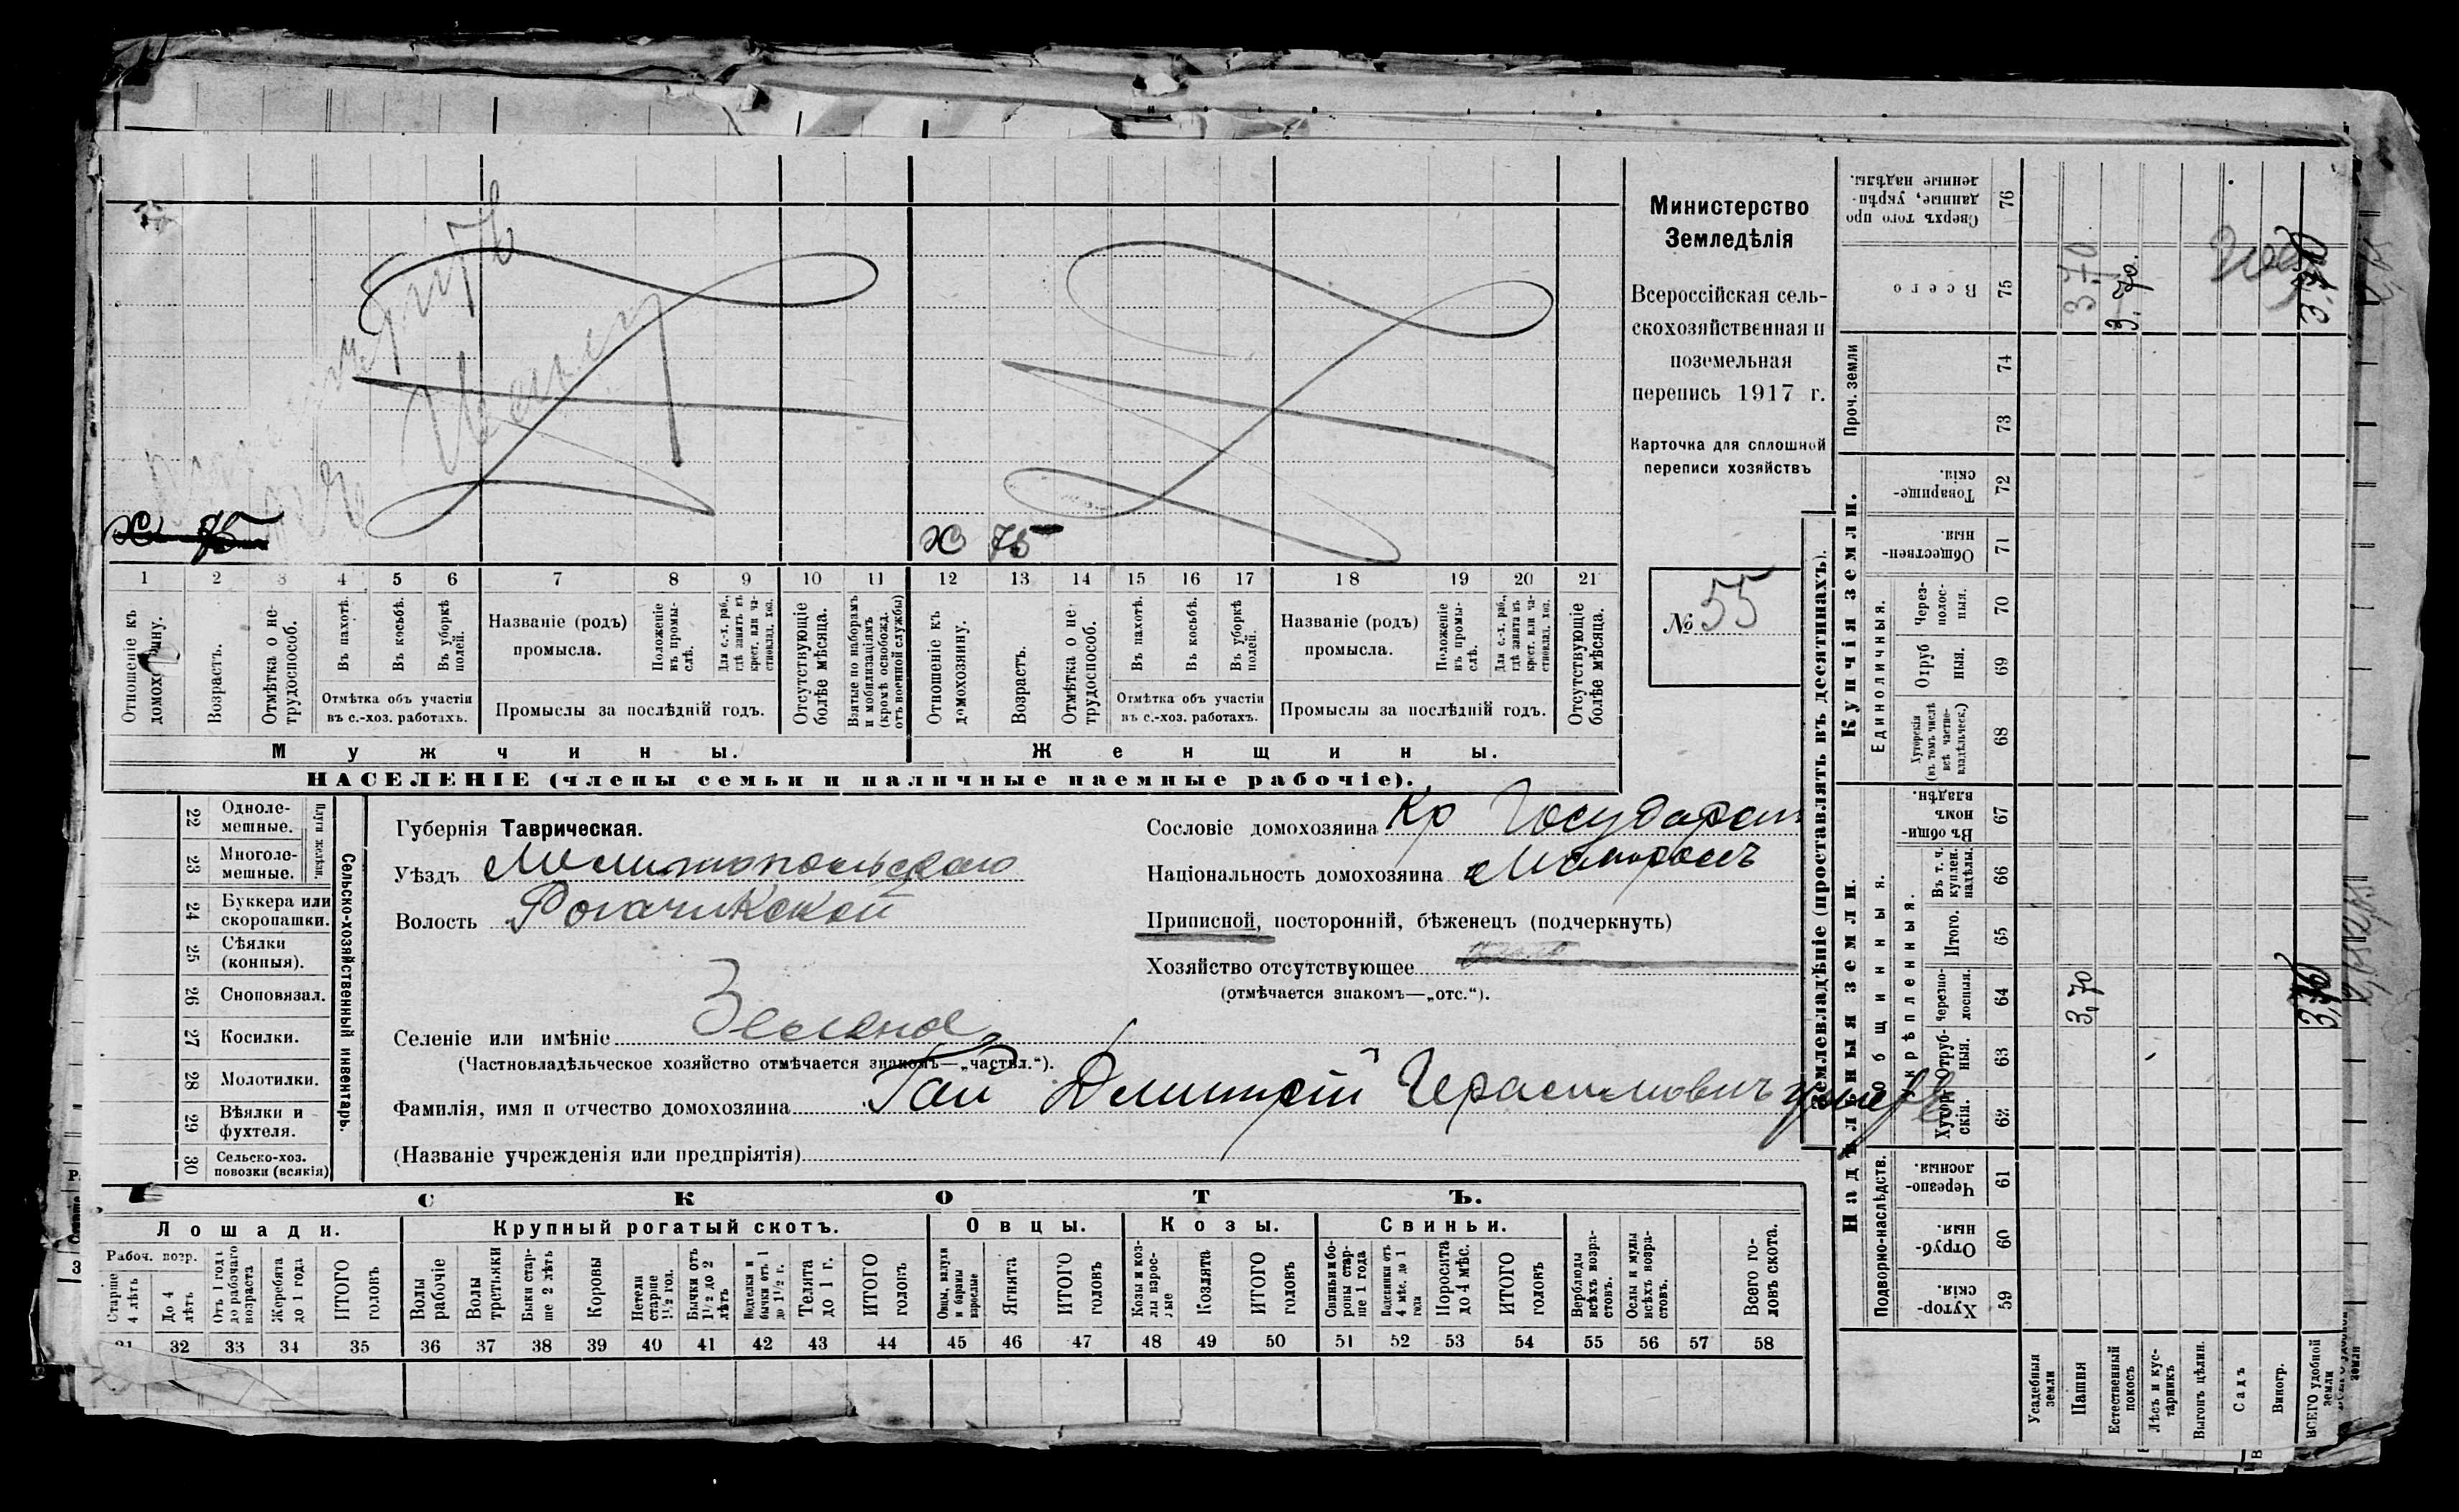 Министерство
Земледѣлія
Всероссійская сель-
скохозяйственная и
поземельная
перепись 1917 г.
Карточка для сплошной
переписи хозяйствъ
№ 55
х 75
х 75
1 2 3 4 5 6 7 8 9 10 11 12 13 14 15 16 17 18 19 20 21
Отношеніе къ домохозяину.
Возрастъ.
Отмѣтка о не-
трудоспособ.
Въ пахотѣ.
Въ косьбѣ.
Въ уборкѣ полей.
Отмѣтка объ участіи
въ с.-хоз. работахъ.
Названіе (родъ)
промысла.
Положеніе въ промы-
слѣ.
Для с.-х. раб., гдѣ занятъ въ крест. или ча-
стновлад. хоз.
Промыслы за послѣдній годъ.
Отсутствующіе
болѣе мѣсяца.
Взятые по наборамъ
и мобилизаціямъ
(кромѣ освобожд.
отъ военной службы)
Отношеніе къ
домохозяину.
Возрастъ.
Отмѣтка о не-
трудоспособ.
Въ пахотѣ.
Въ косьбѣ.
Въ уборкѣ полей.
Отмѣтка объ участіи
въ с.-хоз. работахъ.
Названіе (родъ)
промысла.
Положеніе въ промы-
слѣ.
Для с.-х. раб., гдѣ занята въ крест. или ча-
стновлад. хоз.
Промыслы за послѣдній годъ.
Отсутствующіе
болѣе мѣсяца.
Мужчины.
Женщины.
НАСЕЛЕНІЕ (члены семьи и наличные наемные рабочіе).
22 Одноле-
мешные.
23 Многоле-
мешные.
Плуги желѣзн.
24 Буккера или
скоропашки.
25 Сѣялки
(конныя).
26 Сноповязал.
27 Косилки.
28 Молотилки.
29 Вѣялки и
фухтеля.
30 Сельско-хоз.
повозки (всякія)
Сельско-хозяйственный инвентарь.
Губернія Таврическая.
Уѣздъ Мелитопольскаго
Волость Рогачикской
Сословіе домохозяина Кр Государст
Національность домохозяина Малоросъ
Приписной, посторонній, бѣженецъ (подчеркнуть)
Хозяйство отсутствующее
(отмѣчается знакомъ—„отс.“).
Селеніе или имѣніе Зелена
(Частновладѣльческое хозяйство отмѣчается знакомъ—„частвл.“).
Фамилія, имя и отчество домохозяина Гай Дмитрій Герасимович
(Названіе учрежденія или предпріятія)
СКОТЪ.
Лошади.
Крупный рогатый скотъ.
Овцы.
Козы.
Свиньи.
Рабоч. возр.
Старше
4 лѣтъ
До 4
лѣтъ
Отъ 1 года
до рабочаго
возраста
Жеребята
до 1 года
ИТОГО
головъ
Волы
рабочіе
Волы
третьяки
Быки стар-
ше 2 лѣтъ
Коровы
Нетели
старше
1½ год.
Бычки отъ
1½ до 2
лѣтъ
Подтелки и
бычки отъ 1
до 1½ г.
Телята
до 1 г.
ИТОГО
головъ
Овцы, валухи
и бараны
взрослые
Ягнята
ИТОГО
головъ
Козы и коз-
лы взрос-
лые
Козлята
ИТОГО
головъ
Свиньи и бо-
ровы стар-
ше 1 года
Подсвинки отъ
4 мѣс. до 1
года
Поросята
до 4 мѣс.
ИТОГО
головъ
Верблюды
всѣхъ возра-
стовъ.
Ослы и мулы
всѣхъ возра-
стовъ.
Всего го-
ловъ скота.
31 32 33 34 35 36 37 38 39 40 41 42 43 44 45 46 47 48 49 50 51 52 53 54 55 56 57 58
Землевладѣніе (проставлять въ десятинахъ).
Надѣльныя земли.
Купчія земли.
Проч. земли
Подворно-наслѣдств.
Общинныя.
Укрѣпленныя.
Единоличныя.
Хутор-
скія.
59
Отруб-
ныя.
60
Черезпо-
лосныя.
61
Хутор-
скія.
62
Отруб-
ныя.
63
Черезпо-
лосныя.
64
Итого.
65
Въ т. ч.
куплен.
надѣлы.
66
Въ общи-
номъ
владѣн.
67
Хуторскія
(въ томъ числѣ
всѣ частно-
владѣльческ.)
68
Отруб
ныя.
69
Через-
полос-
ныя.
70
Обществен-
ныя.
71
Товарище-
скія.
72
73
74
Всего
75
Сверхъ того про
данные, укрѣп-
ленные надѣлы.
76
3,70
3,70
3,70
3,70
3,70
Усадебныя
земли
Пашня
Естественный
покосъ
Лѣсъ и кус-
тарникъ
Выгонъ цѣлин.
Садъ
Виногр.
ВСЕГО удобной
земли